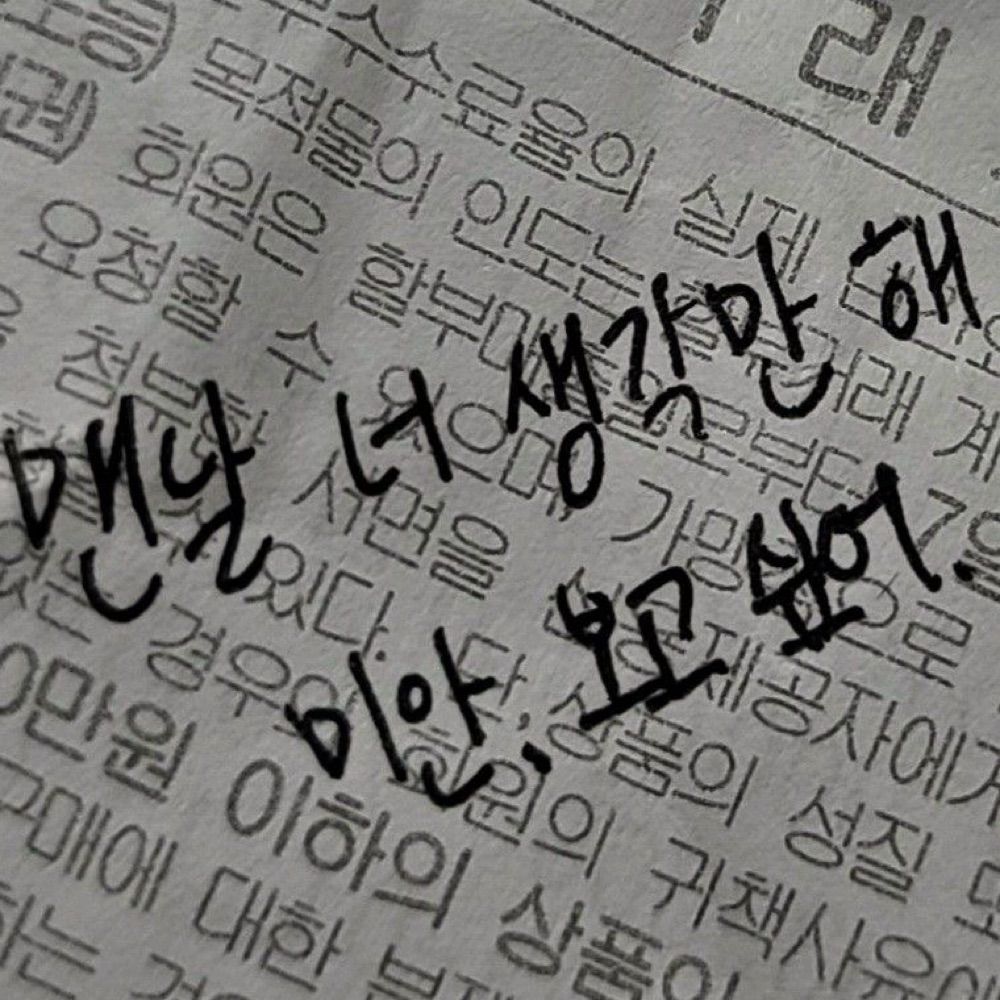 래
수수료율의 실제
목적물의 인도는 거래 계
회원은 할부매출일로부터 7일
요청할 수 있으며, 가맹 으로
첨부한 서면을 제공자에게
있다. 단, 상품의 성질 또
경우와 회원의 귀책사유에
0만원 이하의 상품이
구매에 대한
하는
맨날 너 생각만 해
미안. 보고 싶어.